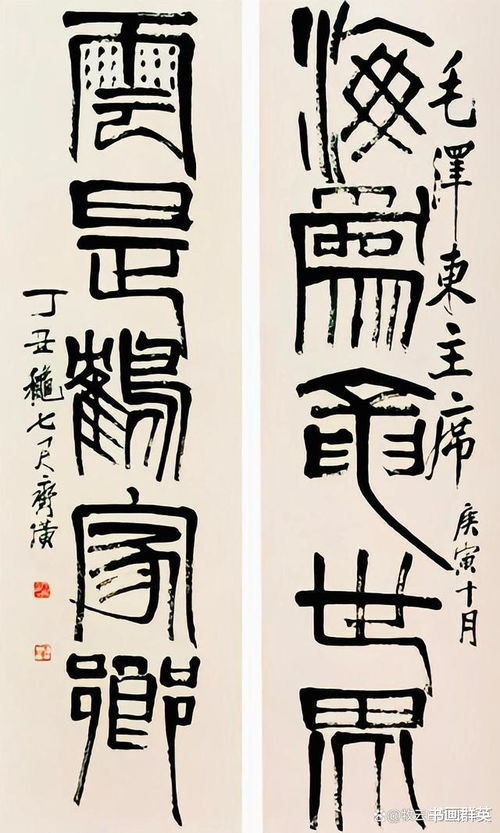 海為龍世界
毛澤東主席
庚寅十月
雲是鶴家鄉
丁丑穐七月齊璜
书画群英